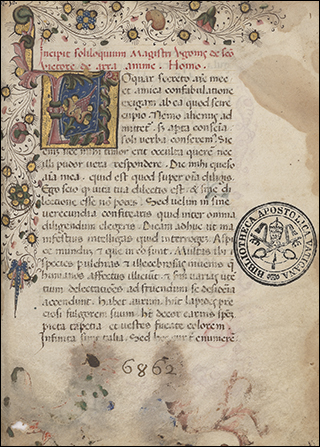 Incipit soliloquium Magistri Ugonis de sco
victore de arra anime. Homo.
Loquar secreto aīe mee
et amica confabulatione
exigam ab ea quod scire
cupio. Nemo alienus ad
mittet. Sʒ aꝑta conscīa
soli verba conserem⁹. Sic
enī nec mihi timor erit occulta querē nec
illi pudor vera respondere. Dic mihi queso
aīa mea, quid est quod super oīa diligis.
Ego scio ꝙ vita tua dilectio est et sine di
lectione esse nō potes. Sed velim ut sine
verecundia confitearis quid inter omnia
diligendum elegeris. Dicam adhuc ut ma
nifestius intelligas quid interroget. Aspi
ce mundū et que in eo sunt. Multas ibi
species pulchras et illecebrosas invenies q̄
humanos affectus illiciūt et sm̄ varias utē
tium delectatiões ad fruendū se desideria
accendunt. habet aurum hnt lapides pre
ciosi fulgorem suum. ht decor carnis spēm.
picta tapetia et vestes fucate colorem.
Infinita sunt talia. Sed hec cur enumerē
6862
BIBLIOTHECA APOSTOLICA VATICANA